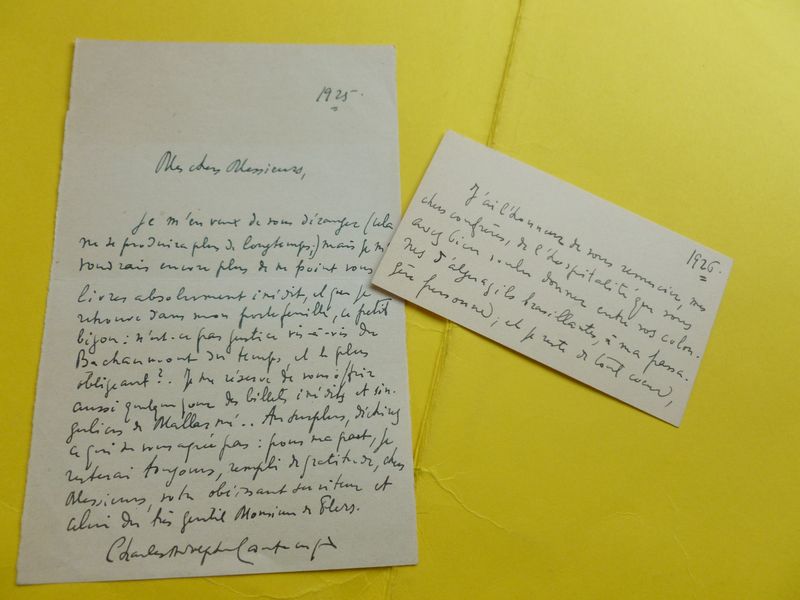 1925.
Mes chers Messieurs,
Je m'en veux de vous déranger (cela
ne se produira plus de longtemps,) mais je m'
voudrais encore plus de ne point vous
livrer absolument inédit, et que je
retrouve dans mon portefeuille, ce petit
bijou : n'est-ce pas justice vis-à-vis du
Bachaumont du temps, et le plus
obligeant ?.. Je me réserve de vous offrir
aussi quelque jour des billets inédits et sin-
guliers de Mallarmé.. Au surplus,
ce qui ne vous agrée pas : pour ma part, je
resterai toujours, rempli de gratitude, chers
Messieurs, votre obéissant serviteur et
celui du très gentil Monsieur de Flers.
Charles Adolphe
1926.
J'ai l'honneur de vous remercier, mes
chers confrères, de l'hospitalité que vous
avez bien voulu donner entre vos colon-
nes d'aiguazils brasillantes, à ma passa-
gère personne ; et je reste de tout coeur,